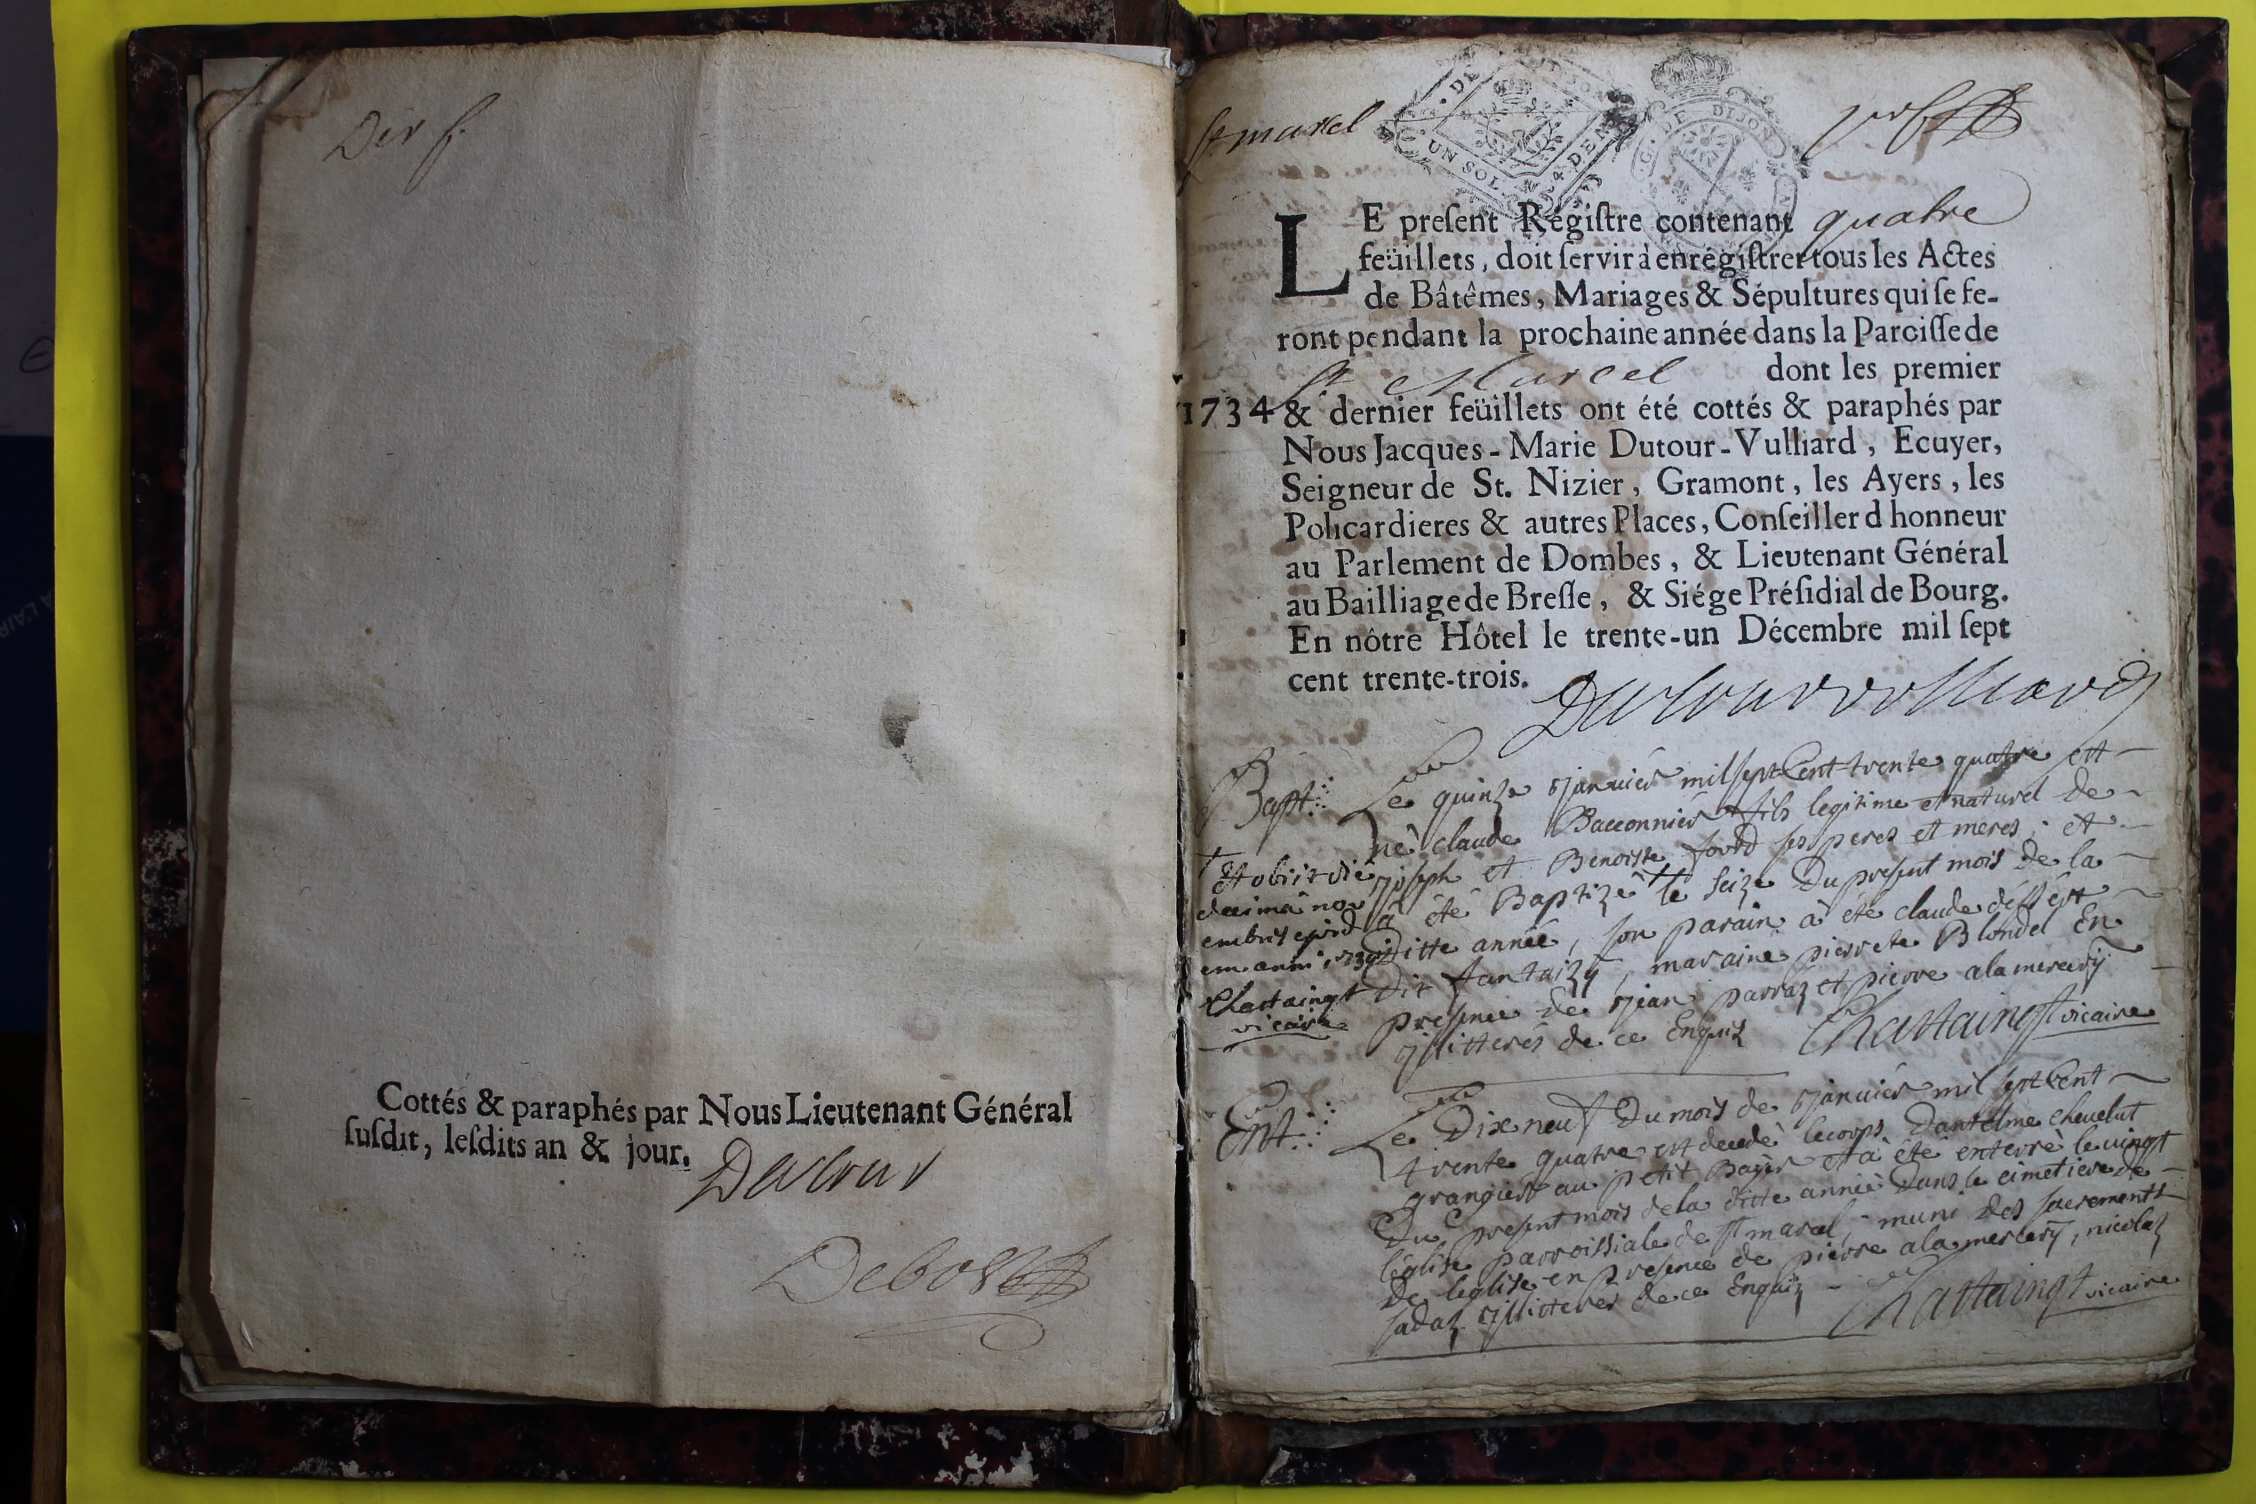 Der f.
Cottés & paraphés par Nous Lieutenant Général
ſuſdit, leſdits an & jour.
Dutour
Debost
St marcel
G. DE DIJON
UN SOL 4 DEN
G. DE DIJON
LE preſent Régiſtre contenant quatre
feüillets, doit ſervir à enrégiſtrer tous les Actes
de Bâtêmes, Mariages & Sépultures qui ſe fe-
ront pendant la prochaine année dans la Paroiſſe de
St Marcel dont les premier
1734 & dernier feüillets ont été cottés & paraphés par
Nous Jacques-Marie Dutour-Vulliard, Ecuyer,
Seigneur de St. Nizier, Gramont, les Ayers, les
Policardieres & autres Places, Conſeiller d honneur
au Parlement de Dombes, & Lieutenant Général
au Bailliage de Breſſe, & Siége Préſidial de Bourg.
En nôtre Hôtel le trente-un Décembre mil ſept
cent trente-trois.
Dutour vulliard
Bapt: Le quinze janvier mil sept Cent trente quatre est
né claude Bacconnier + fils legitime et naturel de
joseph et Benoiste ses peres et meres; et
à été Baptizé le seize Du present mois de la
Ditte année, son parain à été claude
Dit fantaizy, maraine pierrete Blondel En
presence de jean parraz et pierre alamercery
jllitterés de ce Enquis
Chastaingt vicaire
+ Et obiit die
decima nov
embris ejusd
em anni, 1734
Chastaingt
vicaire
Ent: Le Dix neuf Du mois de janvier mil sept Cent
trente quatre est decedé le corps Dantelme chevelut
granger au petit et à été enterré le vingt
Du present mois de la ditte année Dans le cimetiere de
léglise parroissiale de st marcel, muni Des sacrements
De leglise en presence de pierre alamercery, nicolas
sadaz jllitteres de ce Enquis
Chastaingt vicaire